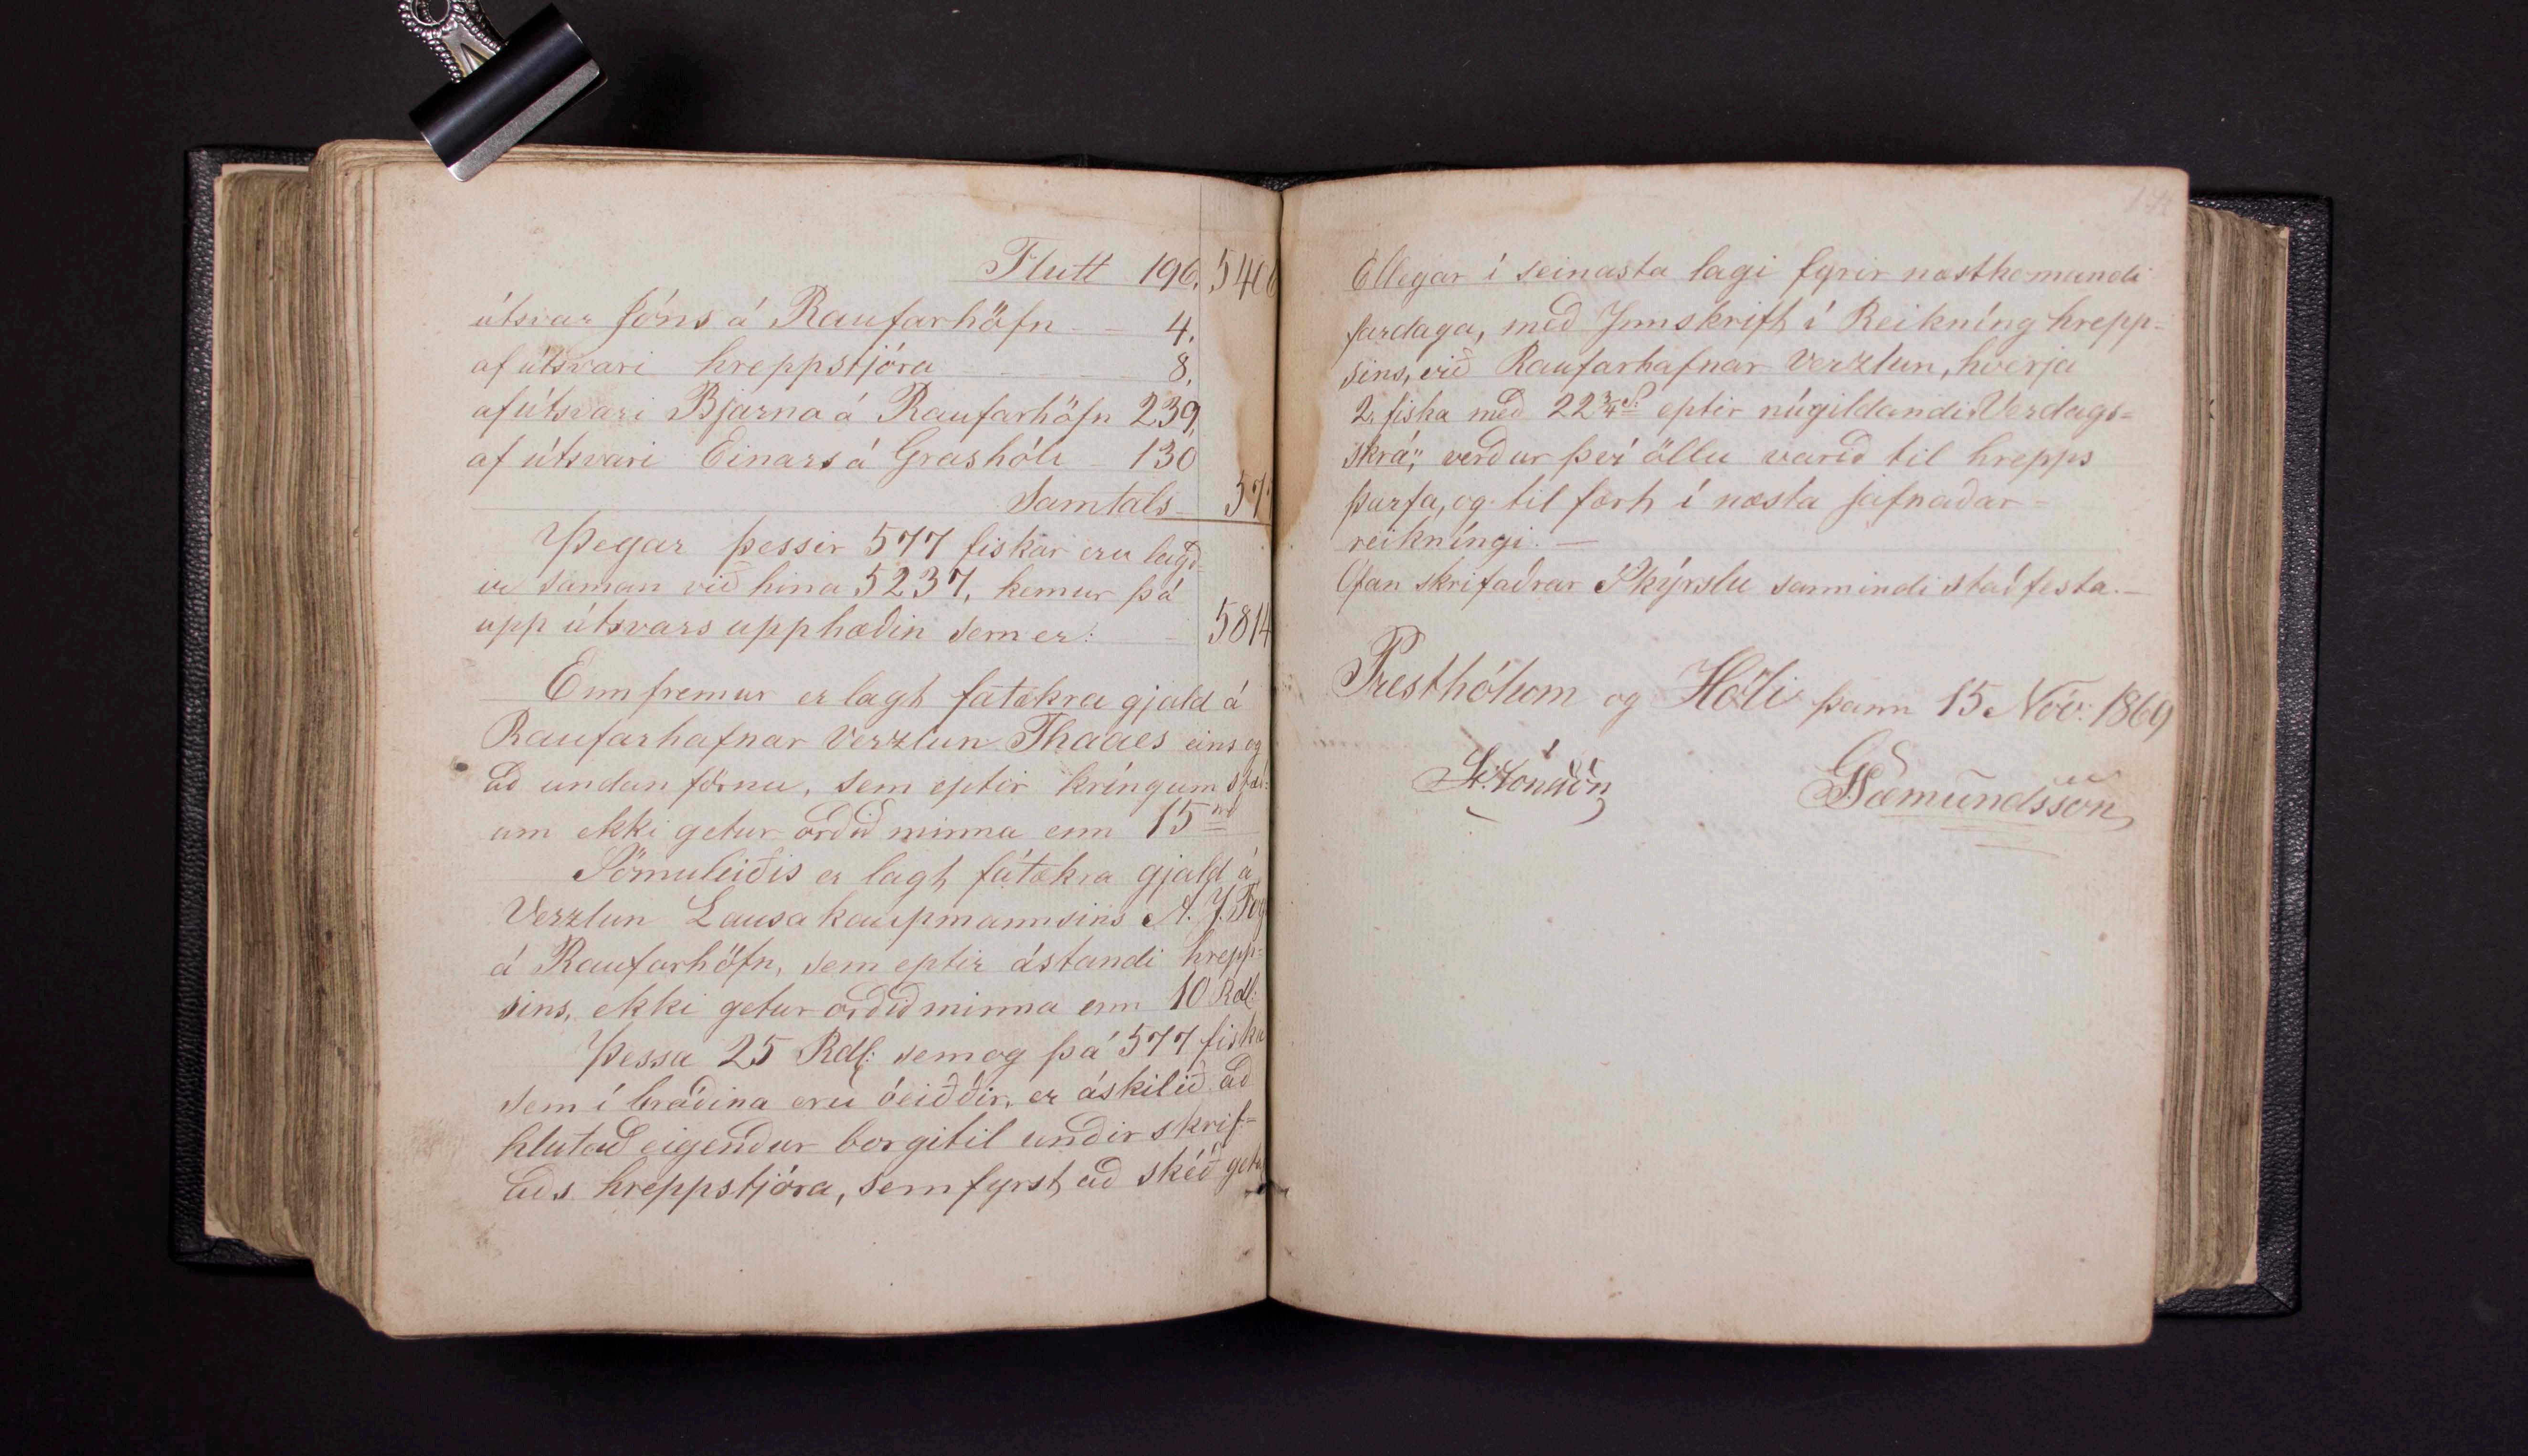 Flutt 196. 5406
útsvar Jóns á Raufarhöfn 4.
af útsvari hreppstjóra 8,
af útsvari Bjarna á Raufarhöfn 239,
af útsvari Einars á Grashóli 130
Samtals 57
Þegar þessir 577 fiskar eru lagð-
ir saman við hina 5237, kemur þá
upp útsvars upphæðin sem er: 5814
Ennfremur er lagt fátækra gjald á
Raufarhafnar Verzlun Thaaes eins og
að undan förnu, sem eptir kringum stæð-
um ekki getur orðið minna enn 15
Sömuleiðis er lagt fátækra gjald á
Verzlun Lausakaupmannsins A. J.
á Raufarhöfn, sem eptir ástandi hrepp=
sins, ekki getur orðið minna enn 10 Rdl:
Þessa 25 Rdl: sem og þá 577 fiska
sem í bráðina eru óeiððir, er áskilið að
hlutað eigendur borgi til undir skrif=
aðs hreppstjóra, sem fyrst að skéð getur
Ellegar í seinasta lagi fyrir næstkomandi
fardaga, með Innskrift í Reikníng hrepp=
sins, við Raufarhafnar Verzlun, hverja
2 fiska með 22 3/4 eptir núgildandi Verdags=
skrá; verður því öllu varið til hrepps
þarfa, og til fært í næsta jafnaðar=
reikníngi. —
Ofan skrifaðrar Skýrslu sannindi staðfesta. —
Presthólum og Hóli þann 15 Nóv: 1869
St. Jónsson
GSæmundsson